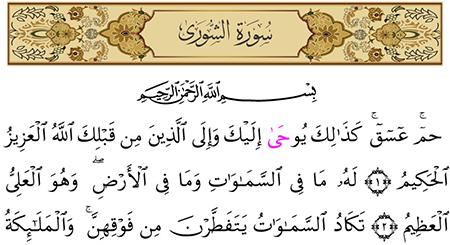 سُورَةُ الشُّورَىٰ
بِسْمِ ٱللَّهِ ٱلرَّحْمَٰنِ ٱلرَّحِيمِ
حمٓۚ عٓسٓقٓۚ كَذَٰلِكَ يُوحَىٰ إِلَيْكَ وَإِلَى ٱلَّذِينَ مِن قَبْلِكَ ٱللَّهُ ٱلْعَزِيزُ
ٱلْحَكِيمُ ﴿١﴾ لَهُۥ مَا فِى ٱلسَّمَٰوَٰتِ وَمَا فِى ٱلْأَرْضِۖ وَهُوَ ٱلْعَلِىُّ
ٱلْعَظِيمُ ﴿٢﴾ تَكَادُ ٱلسَّمَٰوَٰتُ يَتَفَطَّرْنَ مِن فَوْقِهِنَّۚ وَٱلْمَلَٰٓئِكَةُ